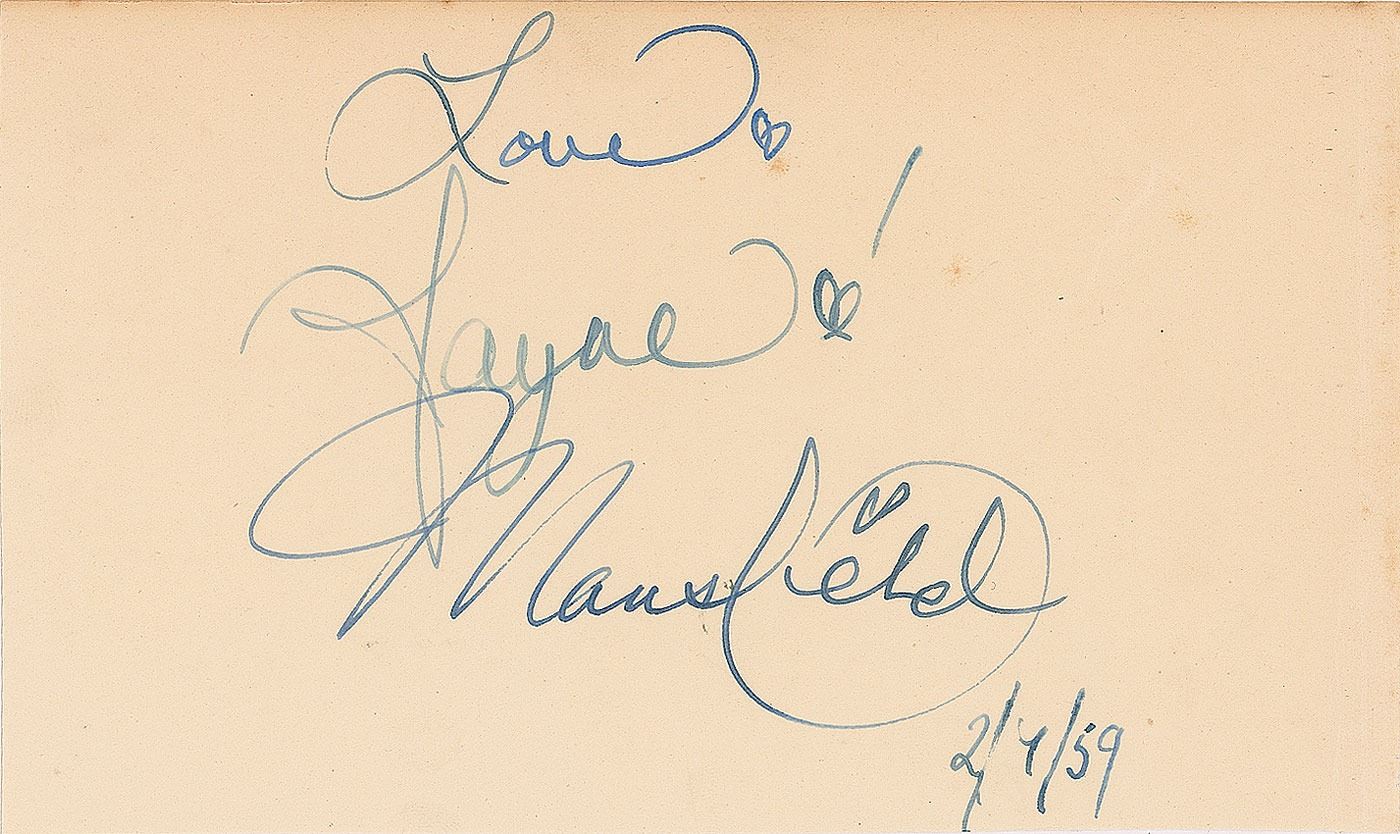 Love
Jayne!
Mansfield
2/4/59